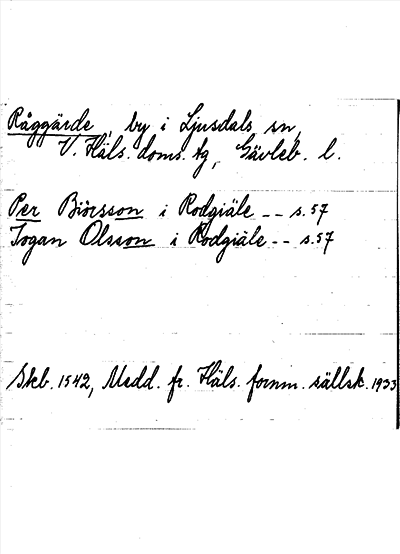 Råggärde, by i Ljusdals sn,
V. Häls. doms. tg, Gävleb. l.
Per Biörsson i Rodgiäle -- s. 57
Jogan Olsson i Rodgiäle -- s. 57
Skb. 1542, Medd. fr. Häls. fornm. sällsk. 1933